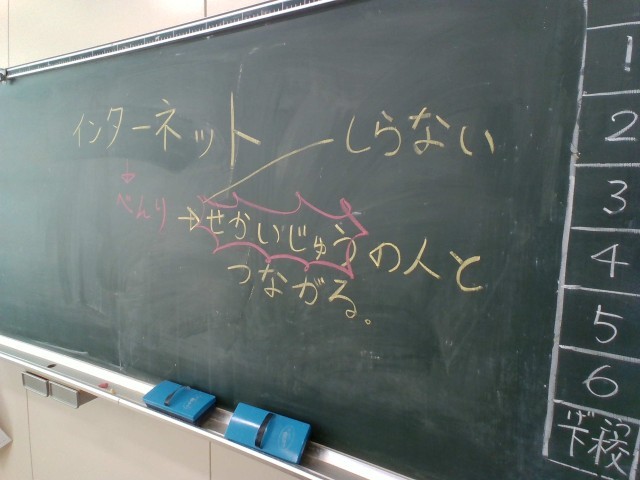 インターネット しらない
↓
べんり →せかいじゅうの人と
つながる。
1
2
3
4
5
6
げこう
下校